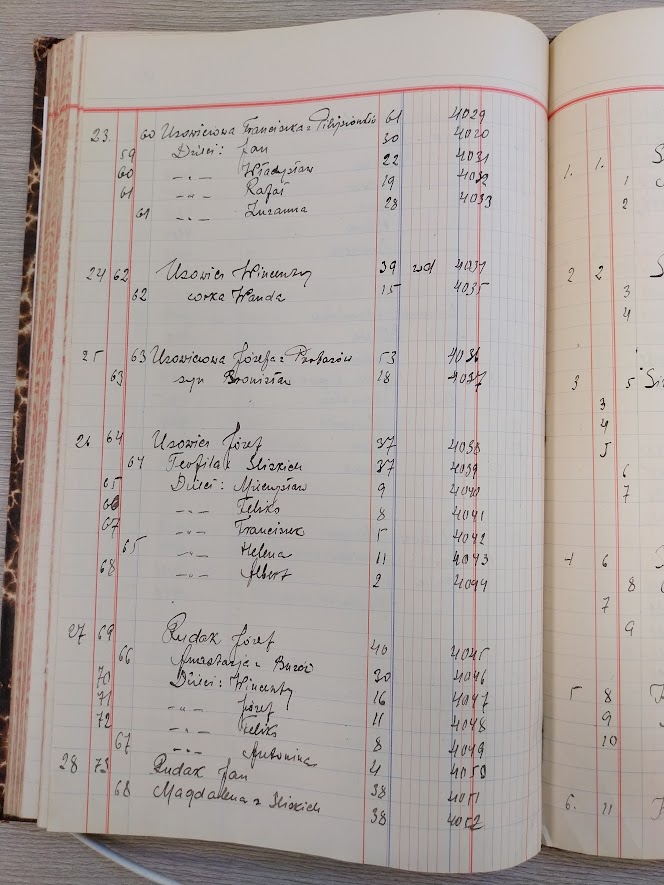 23. 60 Uzowiczowa Franciszka z Filipionków 61 4029
59 Dzieci: Jan 30 4030
60 -"- Władysław 22 4031
61 -"- Rafał 19 4032
61 -"- Zuzanna 28 4033
24 62 Uzowicz Wincenty 39 wd 4034
62 córka Wanda 15 4035
25 63 Uzowiczowa Józefa z 53 4036
63 syn Bronisław 18 4037
26 64 Uzowicz Józef 37 4038
64 Teofila z Śliskich 37 4039
65 Dzieci: Mieczysław 9 4040
66 -"- Feliks 8 4041
67 -"- Franciszek 5 4042
65 -"- Helena 11 4043
68 -"- Albert 2 4044
27 69 Rudak Józef 40 4045
66 Anastazja z 30 4046
70 Dzieci: Wincenty 16 4047
71 -"- Józef 11 4048
72 -"- Feliks 8 4049
67 -"- Antonina 4 4050
28 73 Rudak Jan 38 4051
68 Magdalena z Śliskich 38 4052
1. 1.
1
2
2 2
3
4
3 5
3
4
5
6
7
4 6
8
7
9
5 8
9
10
6. 11